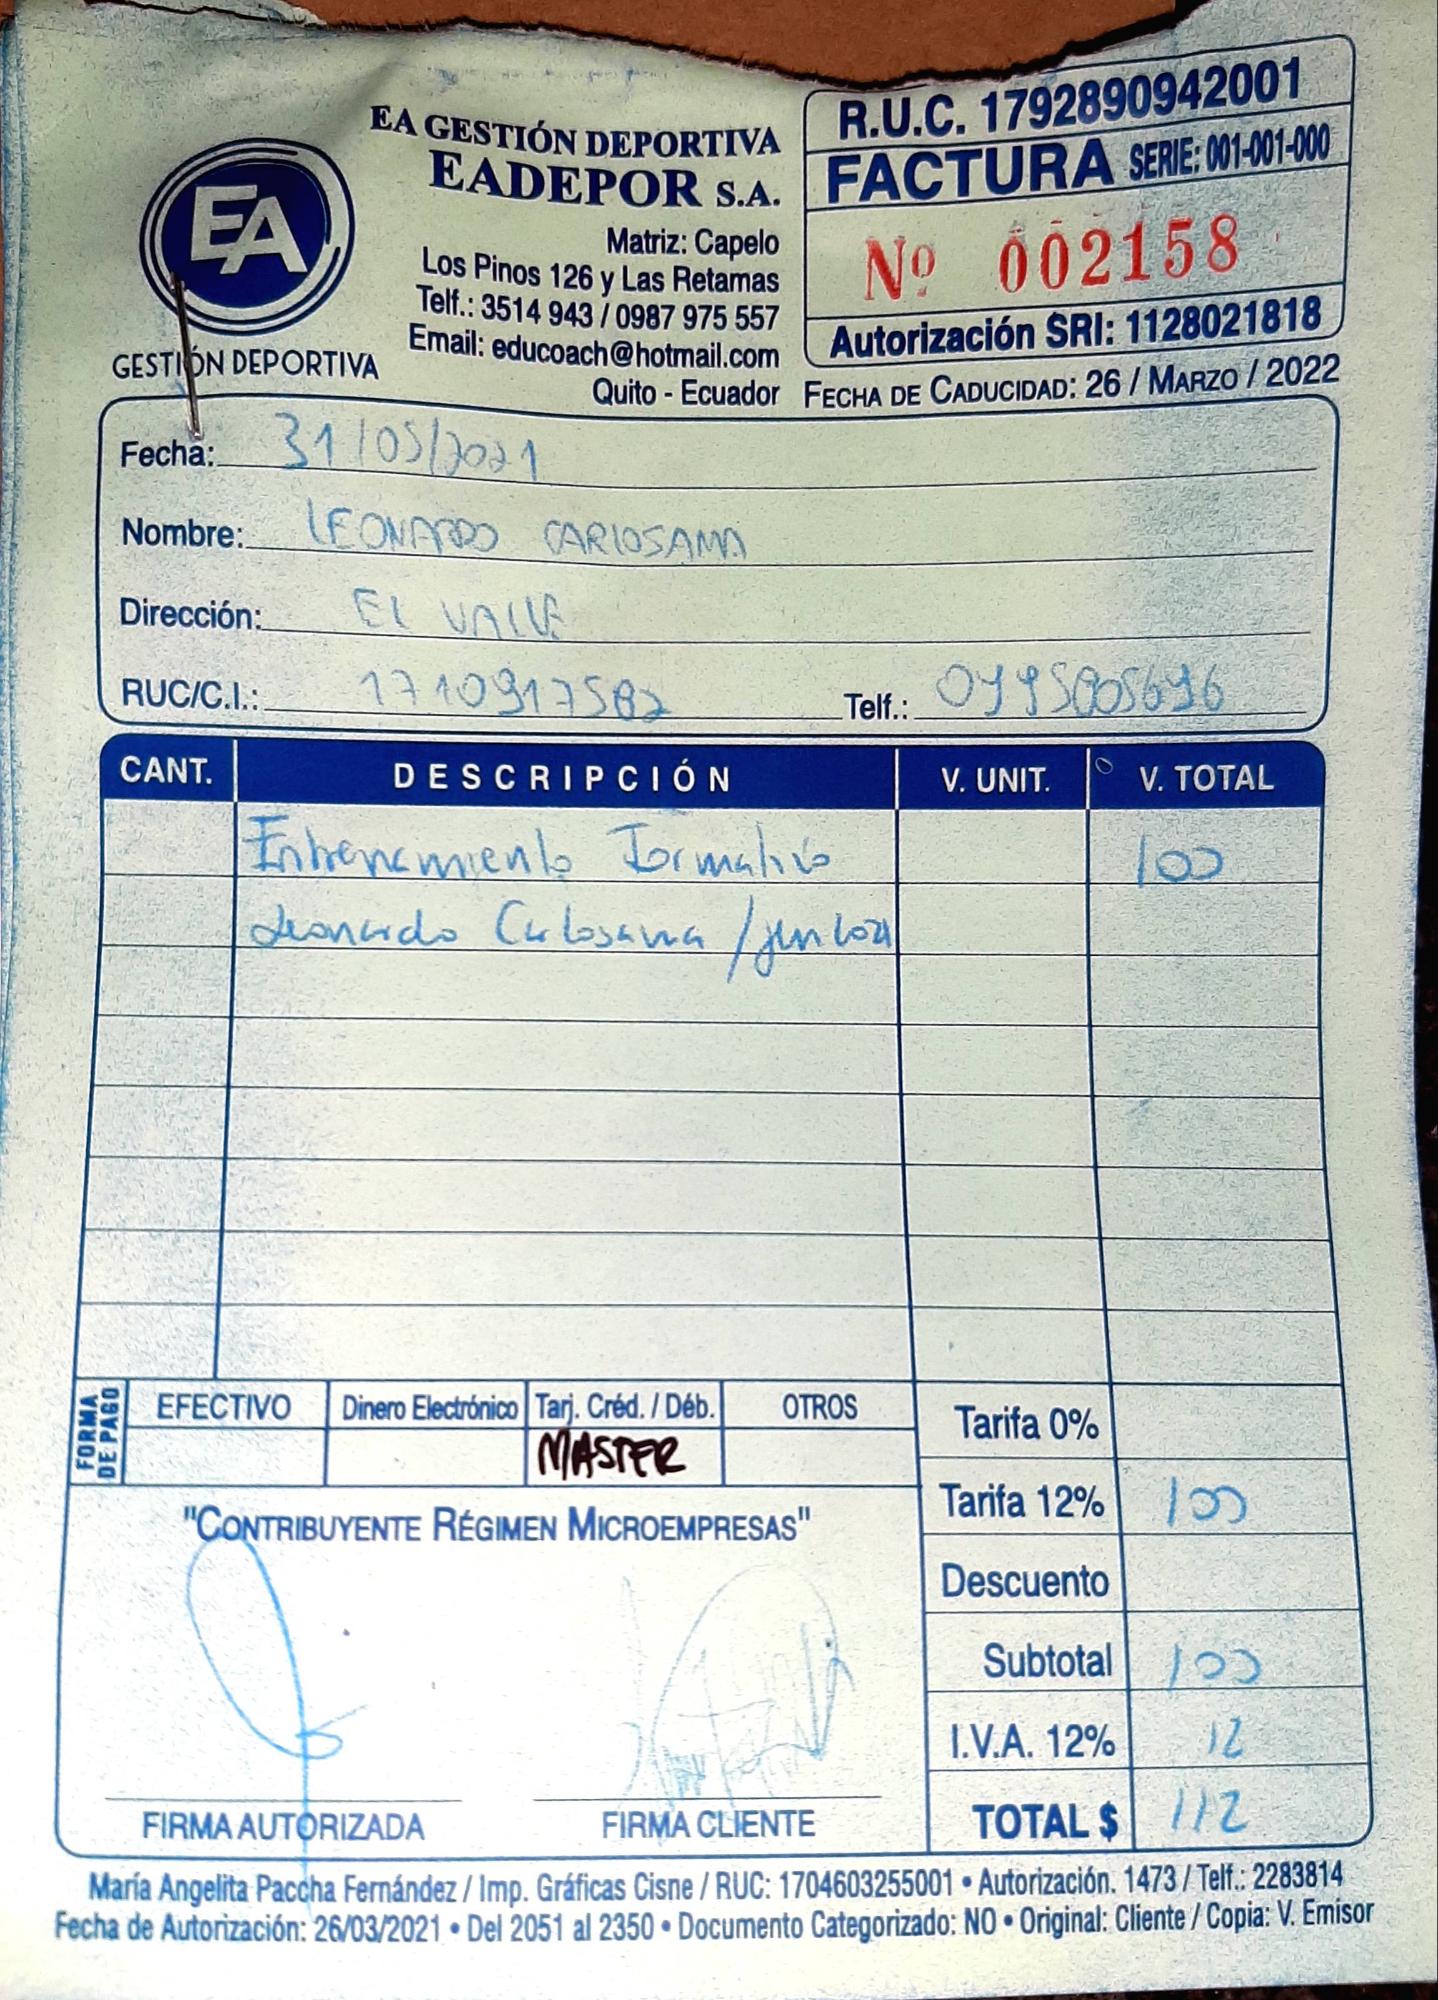 EA
GESTIÓN DEPORTIVA
EA GESTIÓN DEPORTIVA
EADEPOR S.A.
Matriz: Capelo
Los Pinos 126 y Las Retamas
Telf.: 3514 943 / 0987 975 557
Email: educoach@hotmail.com
Quito - Ecuador
R.U.C. 1792890942001
FACTURA SERIE: 001-001-000
Nº 002158
Autorización SRI: 1128021818
FECHA DE CADUCIDAD: 26 / MARZO / 2022
Fecha: 31/05/2021
Nombre: LEONARDO CARLOSAMA
Dirección: EL VALLE
RUC/C.I.: 1710917582 Telf.:
CANT. DESCRIPCIÓN V. UNIT. V. TOTAL
Entrenamiento Formativo 100
Leonardo Carlosama
FORMA DE PAGO
EFECTIVO Dinero Electrónico Tarj. Créd. / Déb. OTROS
MASTER
Tarifa 0%
Tarifa 12% 100
Descuento
Subtotal 100
I.V.A. 12% 12
TOTAL $ 112
"CONTRIBUYENTE RÉGIMEN MICROEMPRESAS"
FIRMA AUTORIZADA FIRMA CLIENTE
María Angelita Paccha Fernández / Imp. Gráficas Cisne / RUC: 1704603255001 • Autorización. 1473 / Telf.: 2283814
Fecha de Autorización: 26/03/2021 • Del 2051 al 2350 • Documento Categorizado: NO • Original: Cliente / Copia: V. Emisor